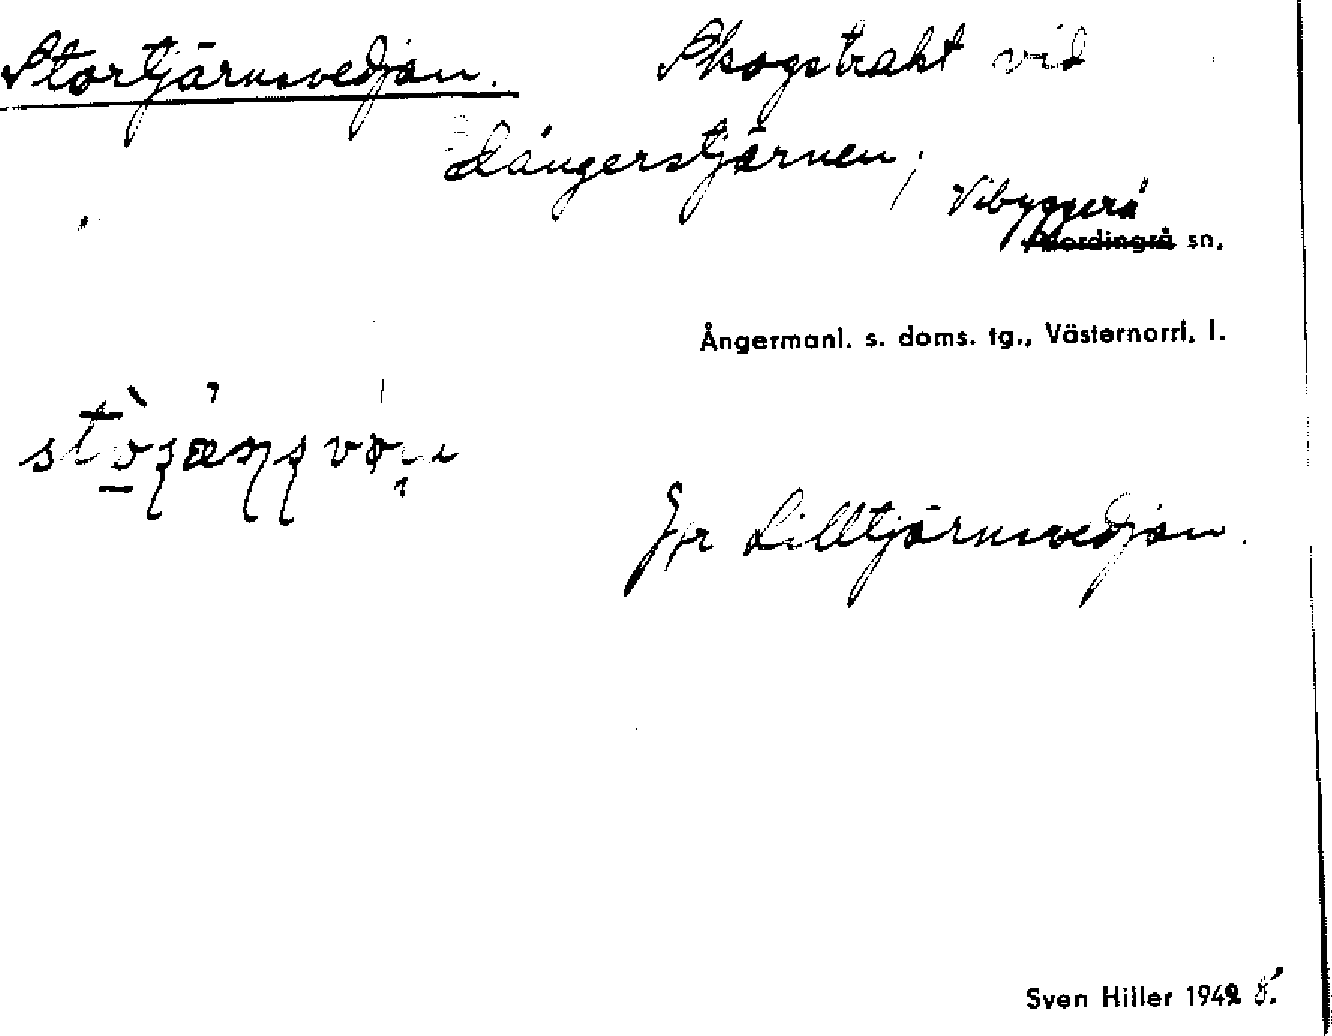 Stortjärnsvedjan. Skogstrakt vid
Långerstjärnen;
Vibyggerå
Nordingrå sn,
Ångermanl. s. doms. tg., Västernorrl. l.
Jfr Lilltjärnsvedjan.
Sven Hiller 194